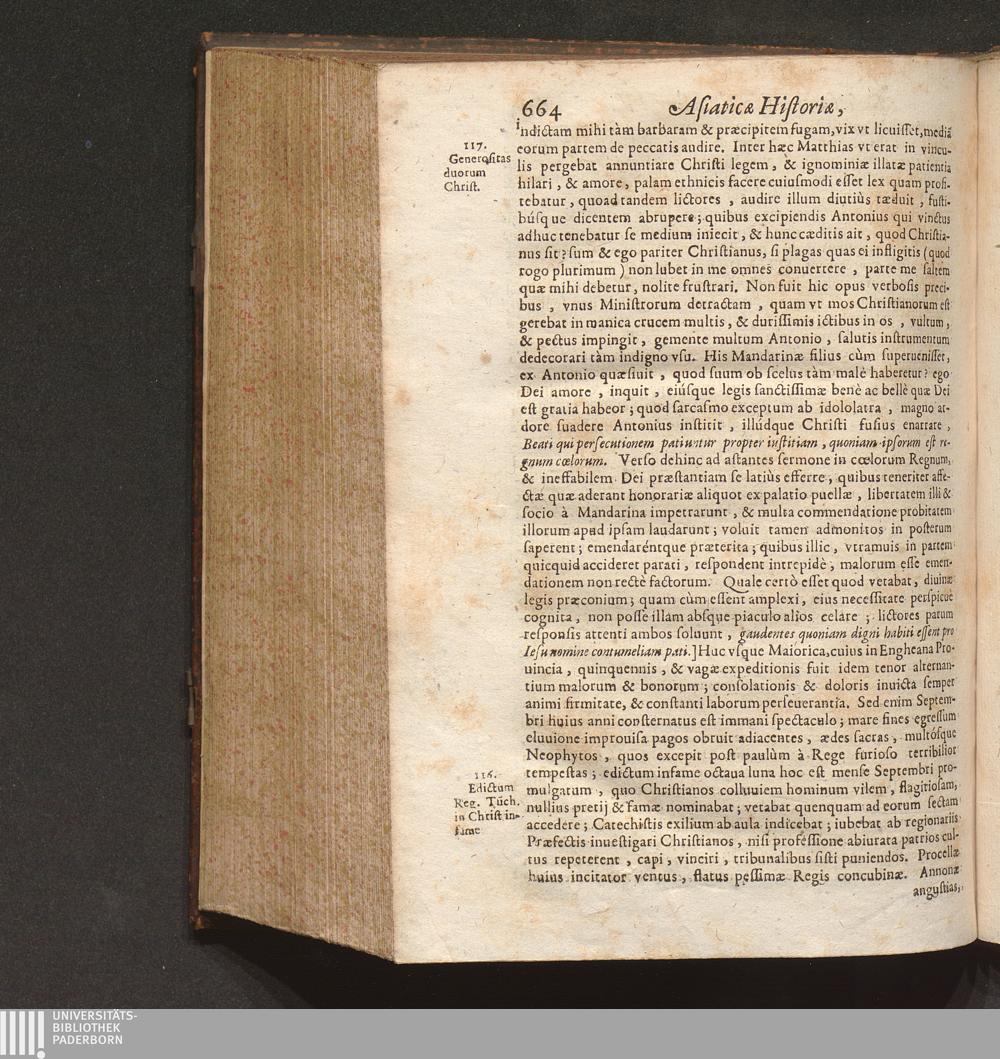 664 Asiaticæ Historiæ,
indictam mihi tàm barbaram & præcipitem fugam, vix vt licuisset, mediã
eorum partem de peccatis audire. Inter hæc Matthias vt erat in vincu-
lis pergebat annuntiare Christi legem, & ignominiæ illatæ patientia
hilari, & amore, palam ethnicis facere cuiusmodi esset lex quam profi-
tebatur, quoad tandem lictores, audire illum diutiùs tæduit, fusti-
búsque dicentem abrupere; quibus excipiendis Antonius qui vinctus
adhuc tenebatur se medium iniecit, & hunc cæditis ait, quod Christia-
nus sit? sum & ego pariter Christianus, si plagas quas ei infligitis (quod
rogo plurimum) non lubet in me omnes conuertere, parte me saltem
quæ mihi debetur, nolite frustrari. Non fuit hic opus verbosis preci-
bus, vnus Ministrorum detractam, quam vt mos Christianorum est
gerebat in manica crucem multis, & durissimis ictibus in os, vultum,
& pectus impingit, gemente multum Antonio, salutis instrumentum
dedecorari tàm indigno vsu. His Mandarinæ filius cùm superuenisset,
ex Antonio quæsiuit, quod suum ob scelus tàm malè haberetur? ego
Dei amore, inquit, eiúsque legis sanctissimæ benè ac bellè quæ Dei
est gratia habeor; quod sarcasmo exceptum ab idololatra, magno ar-
dore suadere Antonius institit, illúdque Christi fusius enarrare,
Beati qui persecutionem patiuntur propter iustitiam, quoniam ipsorum est re-
gnum cœlorum. Verso dehinc ad astantes sermone in cœlorum Regnum,
& ineffabilem Dei præstantiam se latiùs efferre, quibus teneriter affe-
ctæ quæ aderant honorariæ aliquot ex palatio puellæ, libertatem illi &
socio à Mandarina impetrarunt, & multa commendatione probitatem
illorum apud ipsam laudarunt; voluit tamen admonitos in posterum
saperent; emendaréntque præterita; quibus illic, vtramuis in partem
quicquid accideret parati, respondent intrepidè, malorum esse emen-
dationem non rectè factorum. Quale certò esset quod vetabat, diuinæ
legis præconium; quam cùm essent amplexi, eius necessitate perspicuè
cognita, non posse illam absque piaculo alios celare; lictores parum
responsis attenti ambos soluunt, gaudentes quoniam digni habiti essent pro
Iesu nomine contumeliam pati.] Huc vsque Maiorica, cuius in Engheana Pro-
uincia, quinquennis, & vagæ expeditionis fuit idem tenor alternan-
tium malorum & bonorum; consolationis & doloris inuicta semper
animi firmitate, & constanti laborum perseuerantia. Sed enim Septem-
bri huius anni consternatus est immani spectaculo; mare fines egressum
eluuione improuisa pagos obruit adiacentes, ædes sacras, multósque
Neophytos, quos excepit post paulùm à Rege furioso terribilior
tempestas; edictum infame octaua luna hoc est mense Septembri pro-
mulgatum, quo Christianos colluuiem hominum vilem, flagitiosam,
nullius pretij & famæ nominabat; vetabat quenquam ad eorum sectam
accedere; Catechistis exilium ab aula indicebat; iubebat ab regionariis
Præfectis inuestigari Christianos, nisi professione abiurata patrios cul-
tus repeterent, capi, vinciri, tribunalibus sisti puniendos. Procellæ
huius incitator ventus, flatus pessimæ Regis concubinæ. Annonæ
angustias,
117.
Generositas
duorum
Christ.
116.
Edictum
Reg. Tūch.
in Christ in-
fame
UNIVERSITÄTS-
BIBLIOTHEK
PADERBORN